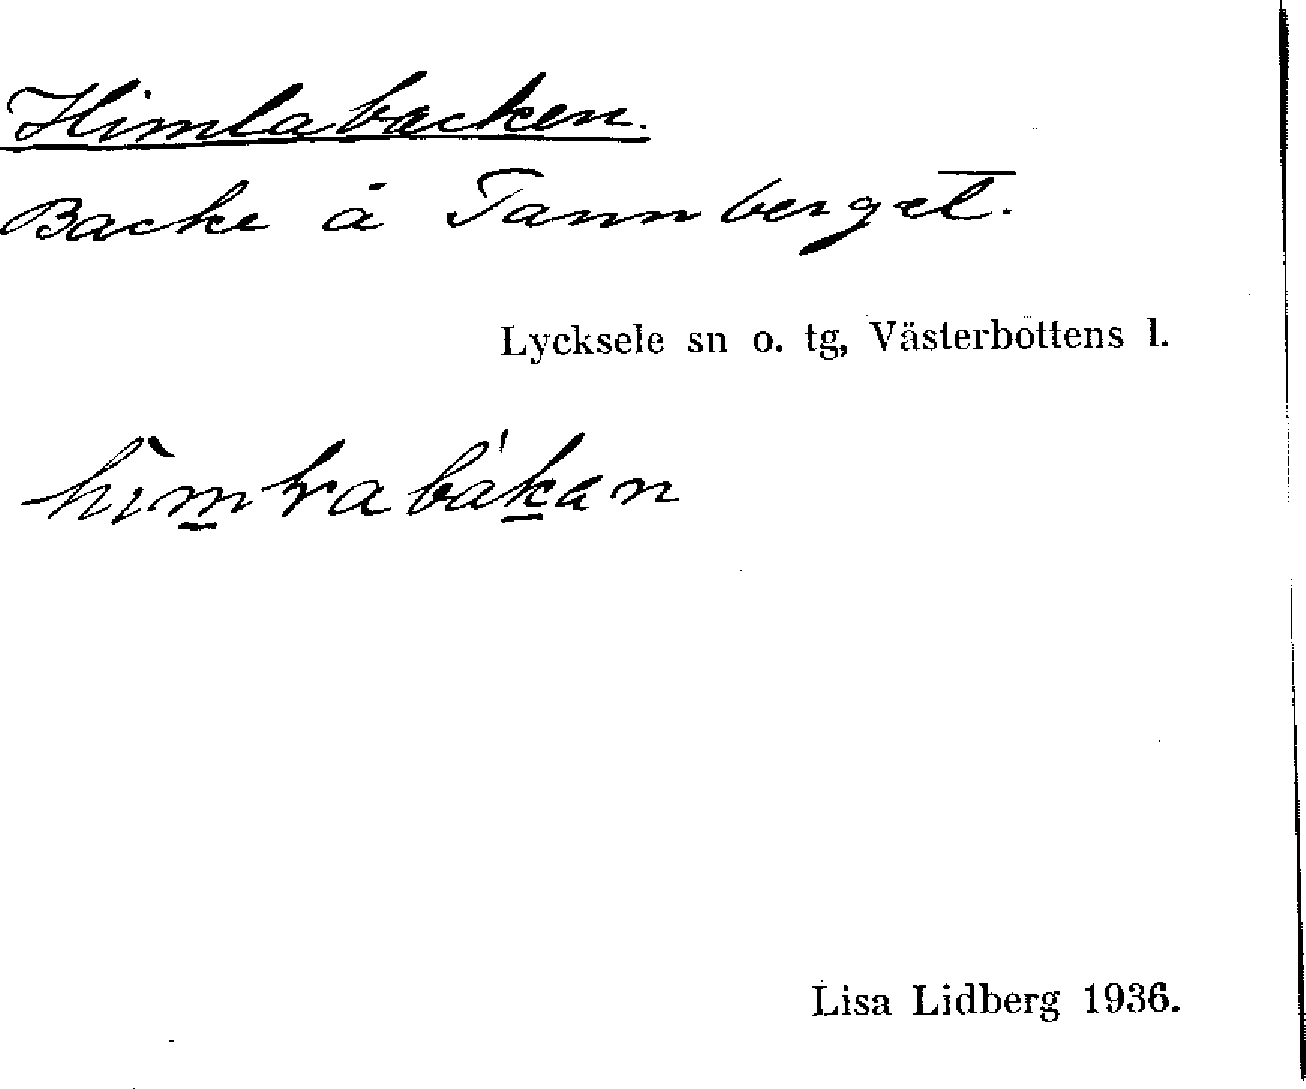 Himlabacken.
Backe å Tannberget.
Lycksele sn o. tg, Västerbottens l.
Lisa Lidberg 1936.